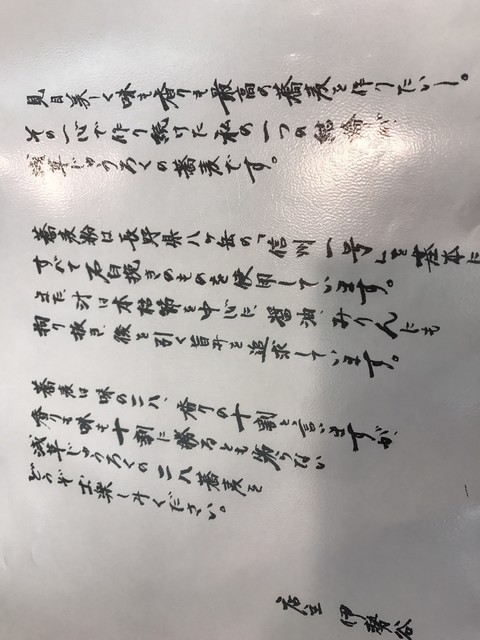 見目美しく味も香りも最高の蕎麦を作りたい…。
その一心で作り続けた私の一つの結論が、
浅草じゅうろくの蕎麦です。
蕎麦粉は長野県八ヶ岳の「信州一号」を基本に
すべて石臼挽きのものを使用しています。
また、汁は本枯節を中心に、醤油、みりんにも
拘り抜き、後を引く旨みを追求しています。
蕎麦は味の二八、香りの十割と言いますが、
香りも味も十割に勝るとも劣らない
浅草じゅうろくの二八蕎麦を
どうぞお楽しみください。
店主 伊勢谷